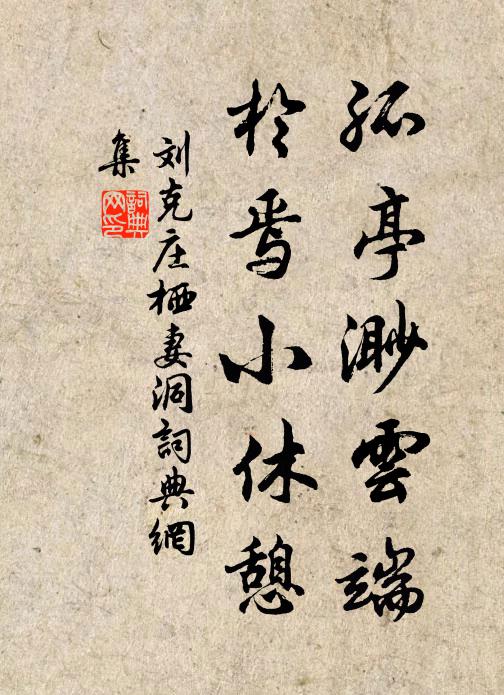 孤亭渺雲端
於焉小休憩
刘克庄栖妻洞詞典網
集
詞典网印